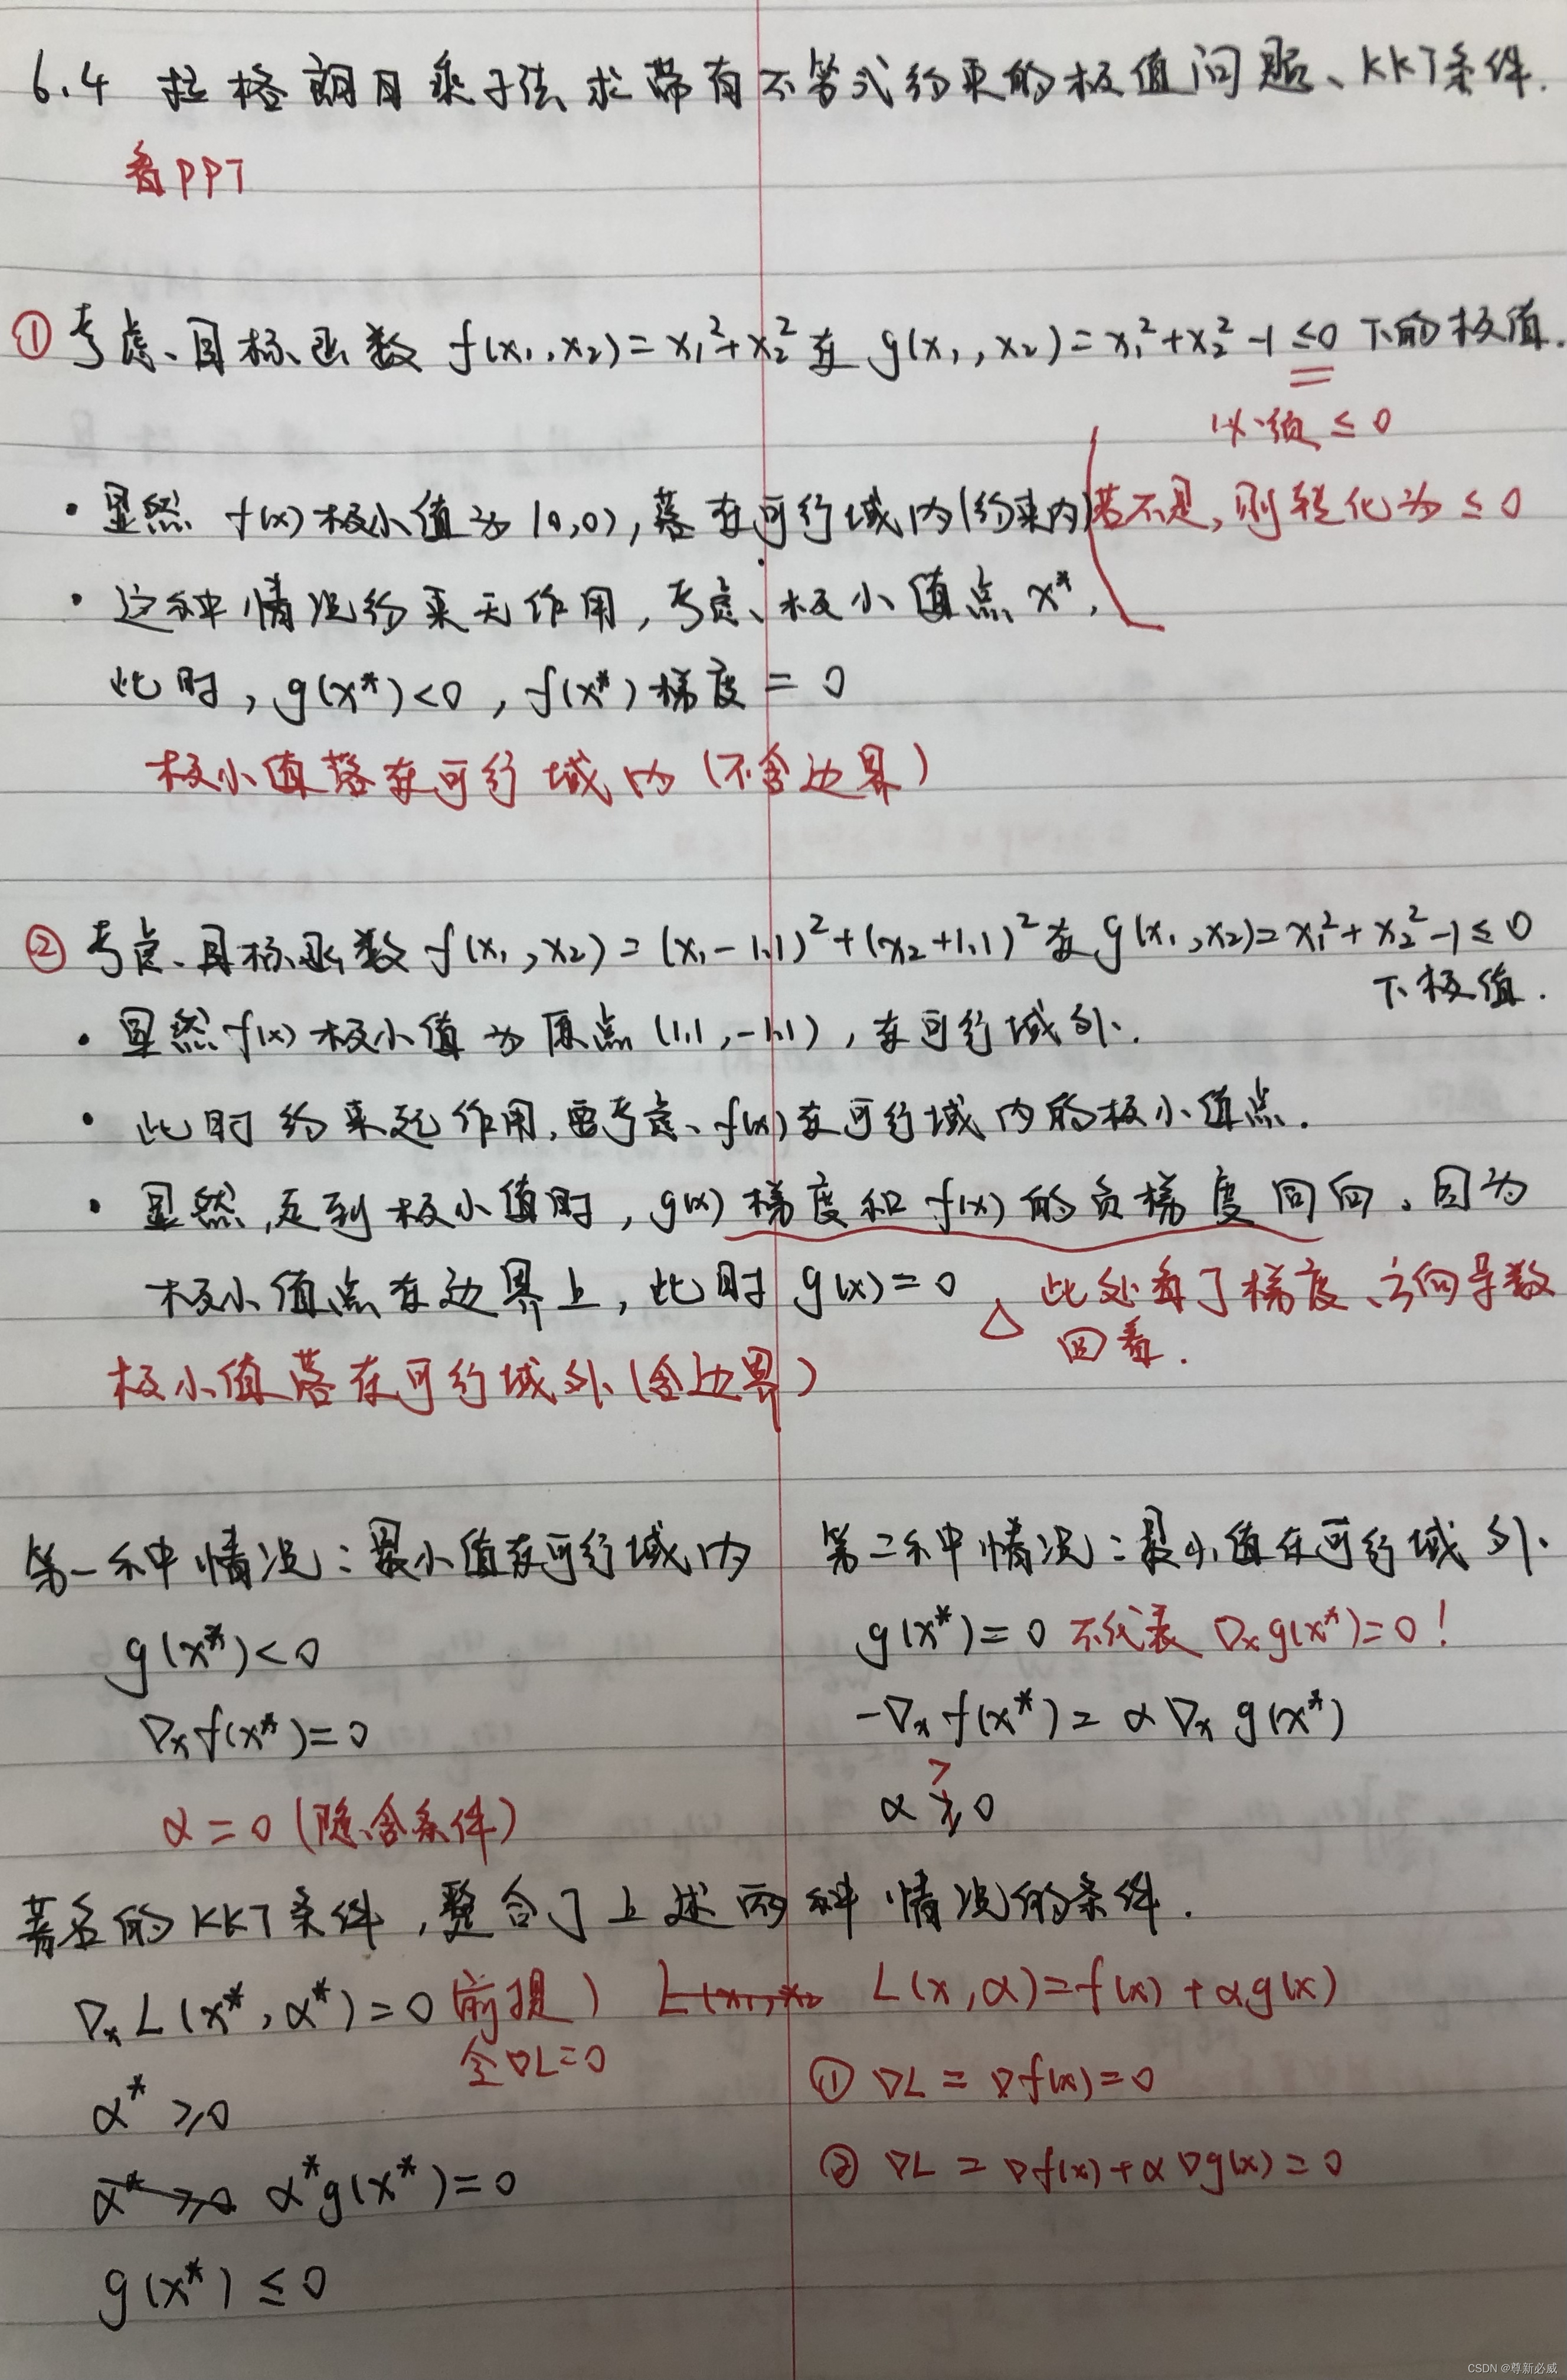 6.4 拉格朗日乘子法求带有不等式约束的极值问题、KKT条件.
看PPT
① 考虑目标函数 f(x₁,x₂)=x₁²+x₂² 在 g(x₁,x₂)=x₁²+x₂²-1≤0 下的极值.
必须≤0
若不是,则转化为≤0
· 显然 f(x)极小值为(0,0),落在可行域内(约束内)
· 这种情况约束无作用,考虑极小值点x*,
此时,g(x*)<0,f(x*)梯度=0
极小值落在可行域内(不含边界)
② 考虑目标函数 f(x₁,x₂)=(x₁-1.1)²+(x₂+1.1)² 在 g(x₁,x₂)=x₁²+x₂²-1≤0
下极值.
· 显然f(x)极小值为原点(1.1,-1.1),在可行域外.
· 此时约束起作用,要考虑f(x)在可行域内的极小值点.
· 显然,走到极小值时,g(x)梯度和f(x)的负梯度同向.因为
极小值点在边界上,此时g(x)=0
△ 此处看了梯度、方向导数
回看.
极小值落在可行域外(含边界)
第一种情况:最小值在可行域内
g(x*)<0
∇ₓf(x*)=0
α=0(隐含条件)
第二种情况:最小值在可行域外.
g(x*)=0 不代表 ∇ₓg(x*)=0!
-∇ₓf(x*)=α∇ₓg(x*)
>
α≥0
著名的KKT条件,整合了上述两种情况的条件.
∇ₓL(x*,α*)=0(前提)
令∇L=0
α*≥0
α*≥0 α*g(x*)=0
g(x*)≤0
L(x₁,x₂ L(x,α)=f(x)+αg(x)
① ∇L=∇f(x)=0
② ∇L=∇f(x)+α∇g(x)=0
CSDN @尊新必威